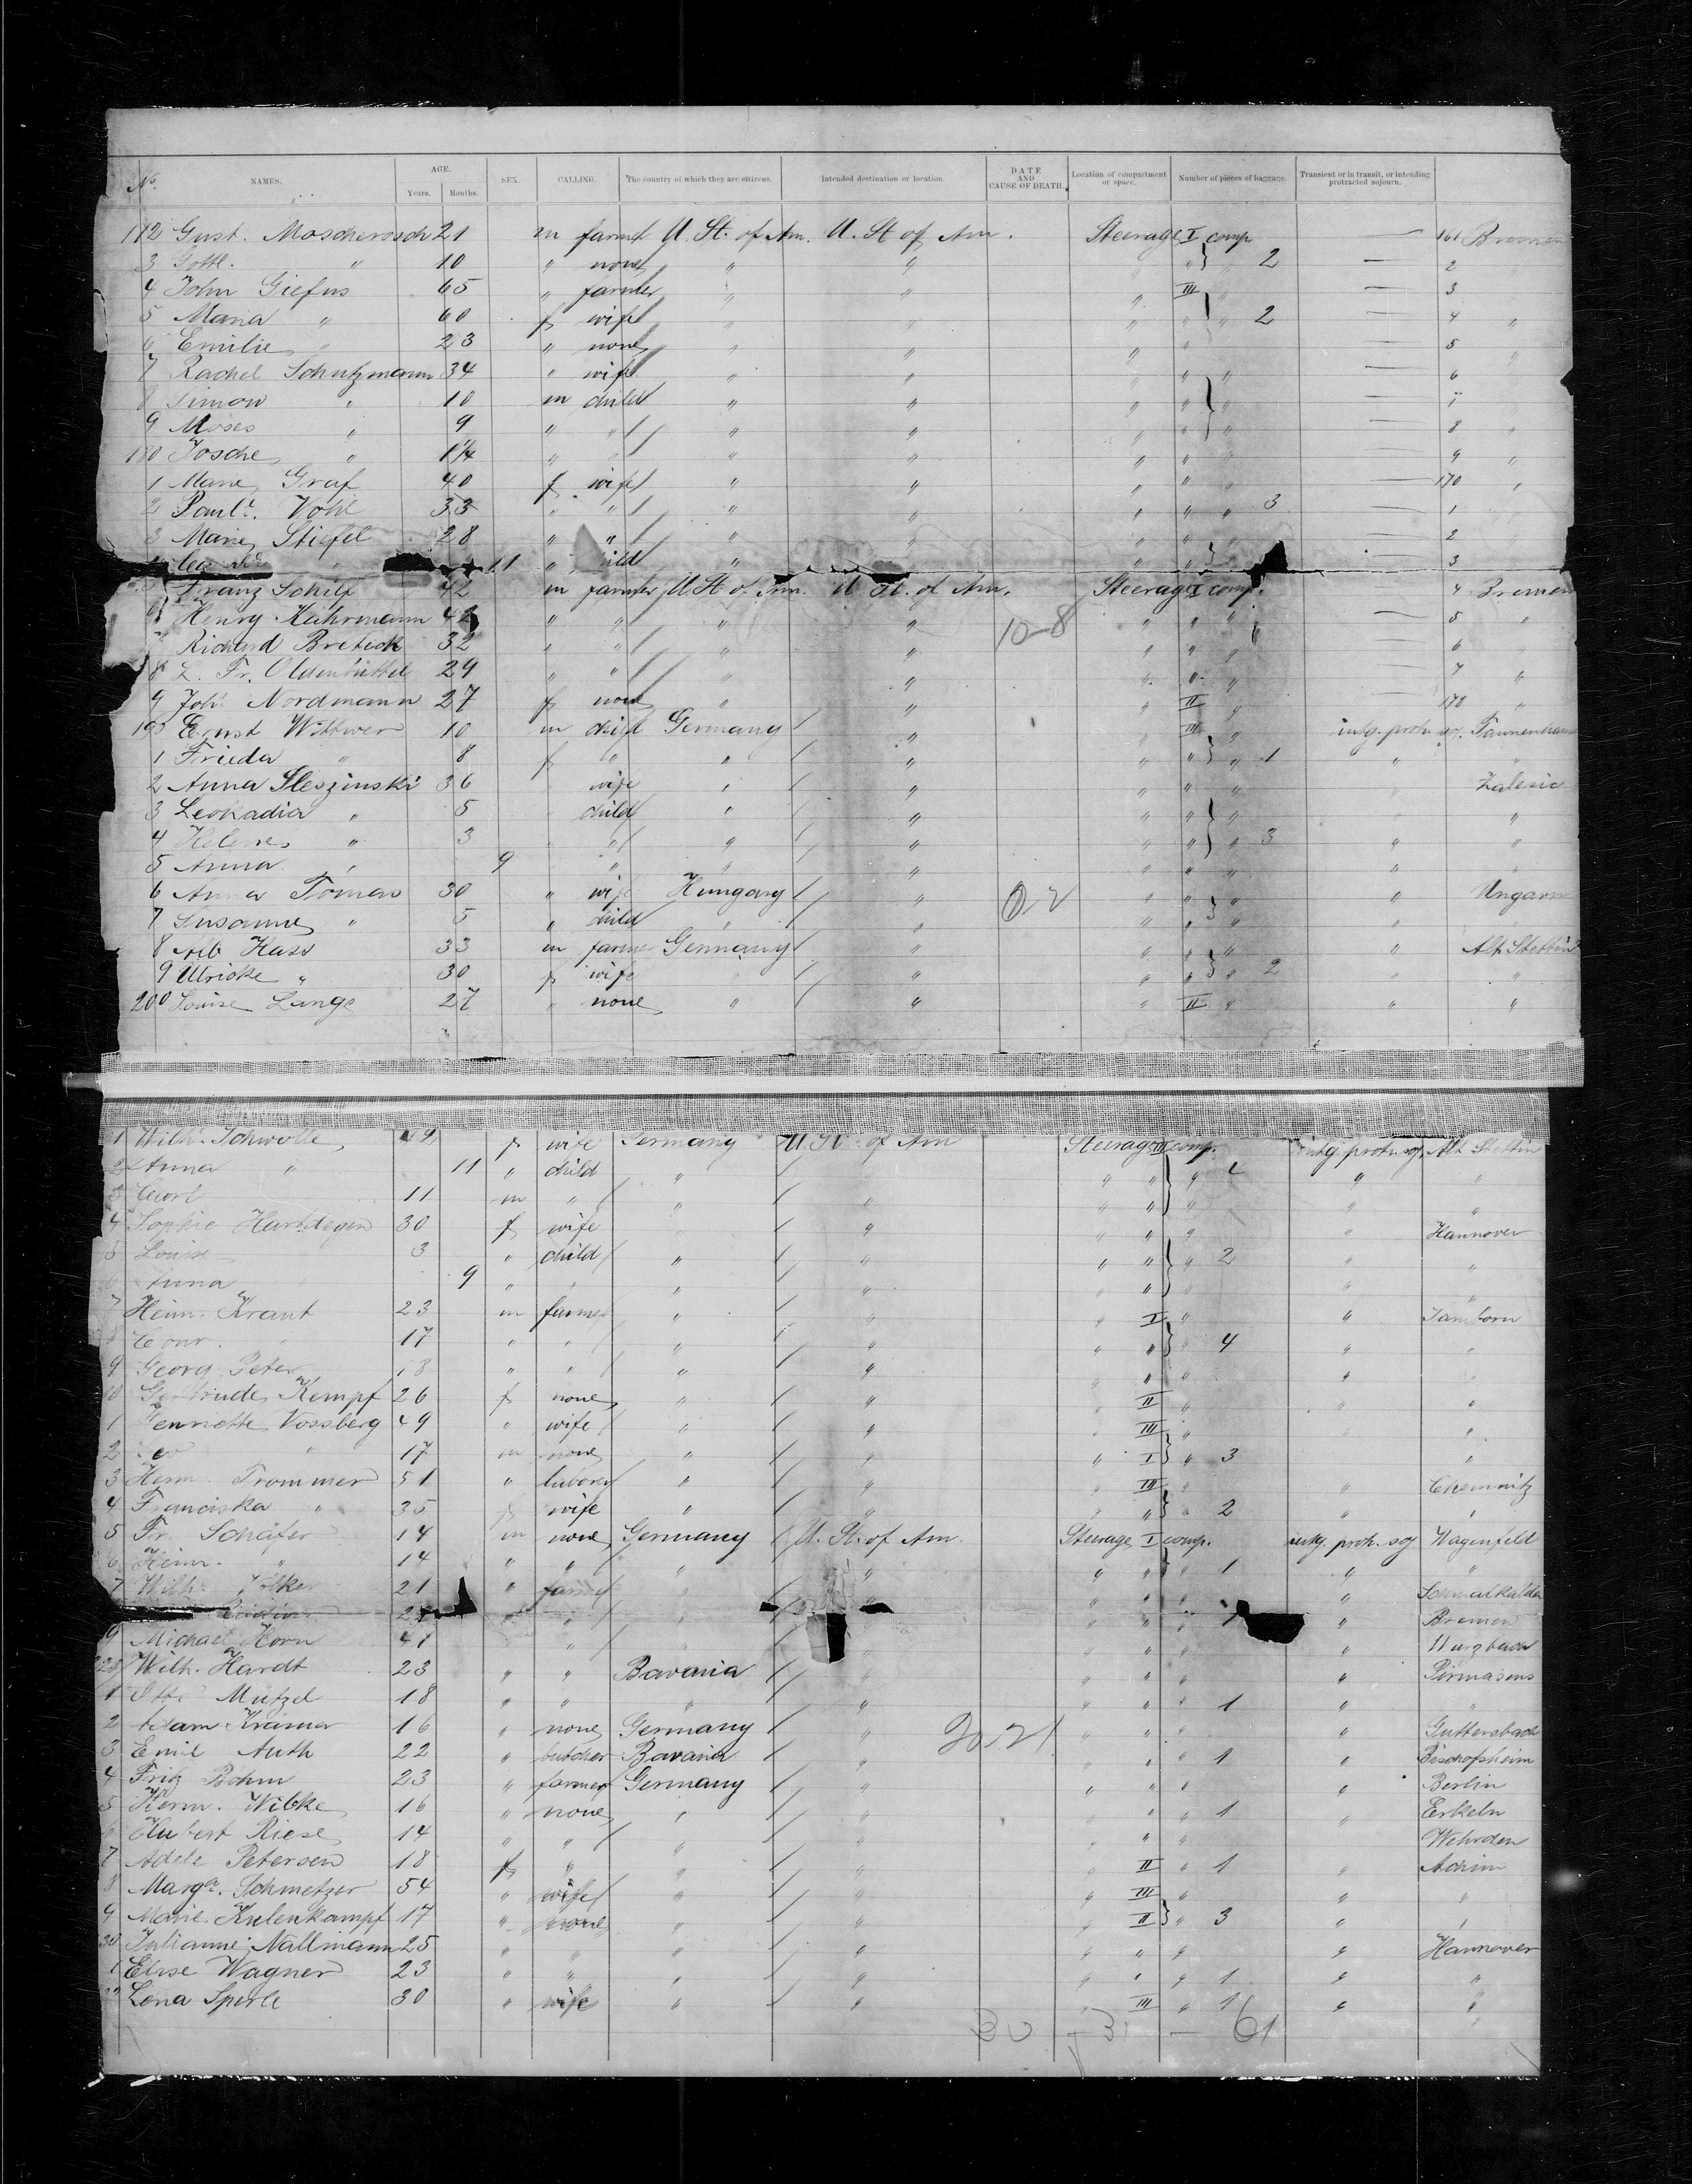 No. NAMES. AGE. Years. Months. SEX. CALLING. The country of which they are citizens. Intended destination or location. DATE AND CAUSE OF DEATH. Location of compartment or space. Number of pieces of baggage. Transient or in transit, or intending protracted sojourn.
172 Gust. Moscherosch 21 m farmer U. St. of Am. U. St of Am. Steerage I comp — 161 Bremen
3 Gottl. " 10 " none " " " " } " 2 — 2
4 John Giefus 65 " farmer " " " III " — 3
5 Maria " 60 f wife " " " " " 2 — 4 "
6 Emilie " 23 " none " " " " — 5
7 Rachel Schutzmann 34 " wife " " " " " — 6 "
8 Simon " 10 m child " " " " } " — 7
9 Moses " 9 " " " " " " " — 8 "
180 Josche " 1 1/4 " " " " " " " — 9 "
1 Marie Graf 40 f wife " " " " " — 170 "
2 Paule. Vohl 33 " " " " " " " 3 — 1 "
3 Marie Stiefel 28 " " " " " " " — 2 "
" 11 " child " " " } — 3
Franz Schilf 42 m farmer U. St. of Am. U. St. of Am. Steerage I comp. 4 Bremen
6 Henry Kuhrmann 42 " " " " 10-8 " " " — 5 "
Richard Bretick 32 " " " " " " " — 6
8 L. Fr. Oldenbüttel 29 " " " " " " " — 7 "
9 Joh. Nordmann 27 f none " " " II " — 178 "
190 Ernst Wittwer 10 m child Germany " " III " intg. protr. soj. Tannenhaus
1 Frieda " 8 f " " " " " } " 1 " "
2 Anna Sleszinski 36 wife " " " " " Zalesie
3 Leokadia " 5 child " " " " } " "
4 Helene " 3 " " " " " " 3 " "
5 Anna " 9 " " " " " " " "
6 Anna Tomas 30 " wife Hungary " 0-2 " " " " Ungarn
7 Susanne " 5 " child " " " " } " "
8 Alb Hass 33 m farmer Germany " " " " " Alt Stettin
9 Ulricke " 30 f wife " " " } " 2 " "
200 Louise Lange 27 " none " " " II " " "
1 Wilhe Schwolle 49 f wife Germany U. St. of Am Steerage III comp. intg. protr. soj. Alt Stettin
2 Anna " 11 " child " " " } " " "
3 Carl 11 m " " " " " " " "
4 Sophie Hartdegen 30 f wife " " " " " Hannover
5 Louise 3 " child " " " " } " 2 "
6 Anna 9 " " " " " " "
7 Heinr. Kraut 23 m farmer " " " I " "
8 Conr. " 17 " " " " " " } " 4 " "
9 Georg Peter 18 " " " " " " " "
10 Gertrude Kempf 26 f none " " " II " " "
1 Hennette Vossberg 49 " wife " " " III " " "
2 " 17 m none " " " I } " 3 "
3 Herm. Trommer 51 " laborer " " " III " " Chemnitz
4 Franciska " 35 f wife " " " " } " 2 " "
5 Fr. Schäfer 14 m none Germany U. St. of Am. Steerage I comp. intg. protr. soj Wagenfeld
6 Heinr. " 14 " " " " " " } " 1 " "
7 Wilh. Völker 21 " farmer " " " " " Schmalkalden
" " " 1 " Bremen
9 Michael Korn 41 " " " " " " " Wurzbach
220 Wilh. Hardt 23 " " Bavaria " " " " " Pirmasens
1 Otto Mützel 18 " " " " " " " 1 " "
2 Adam Krämer 16 " none Germany " 20-21 " " " " Guttersbach
3 Emil Auth 22 " butcher Bavaria " " " " 1 " Bischofsheim
4 Fritz Bohm 23 " farmer Germany " " " " " Berlin
5 Herm. Wibke 16 " none " " " " " 1 " Erkeln
6 Hubert Riese 14 " " " " " " " Wehrden
7 Adele Petersen 18 f " " " " II " 1 " Achim
8 Marga. Schmetzer 54 " wife " " " III " " "
9 Marie Kulenkampf 17 " none " " " II } " 3 " "
30 Julianne Nallmann 25 " " " " " " " " Hannover
1 Elise Wagner 23 " " " " " " " 1 " "
32 Lena Sperle 30 " wife " " " III " 1 " "
30 - 31 - 61